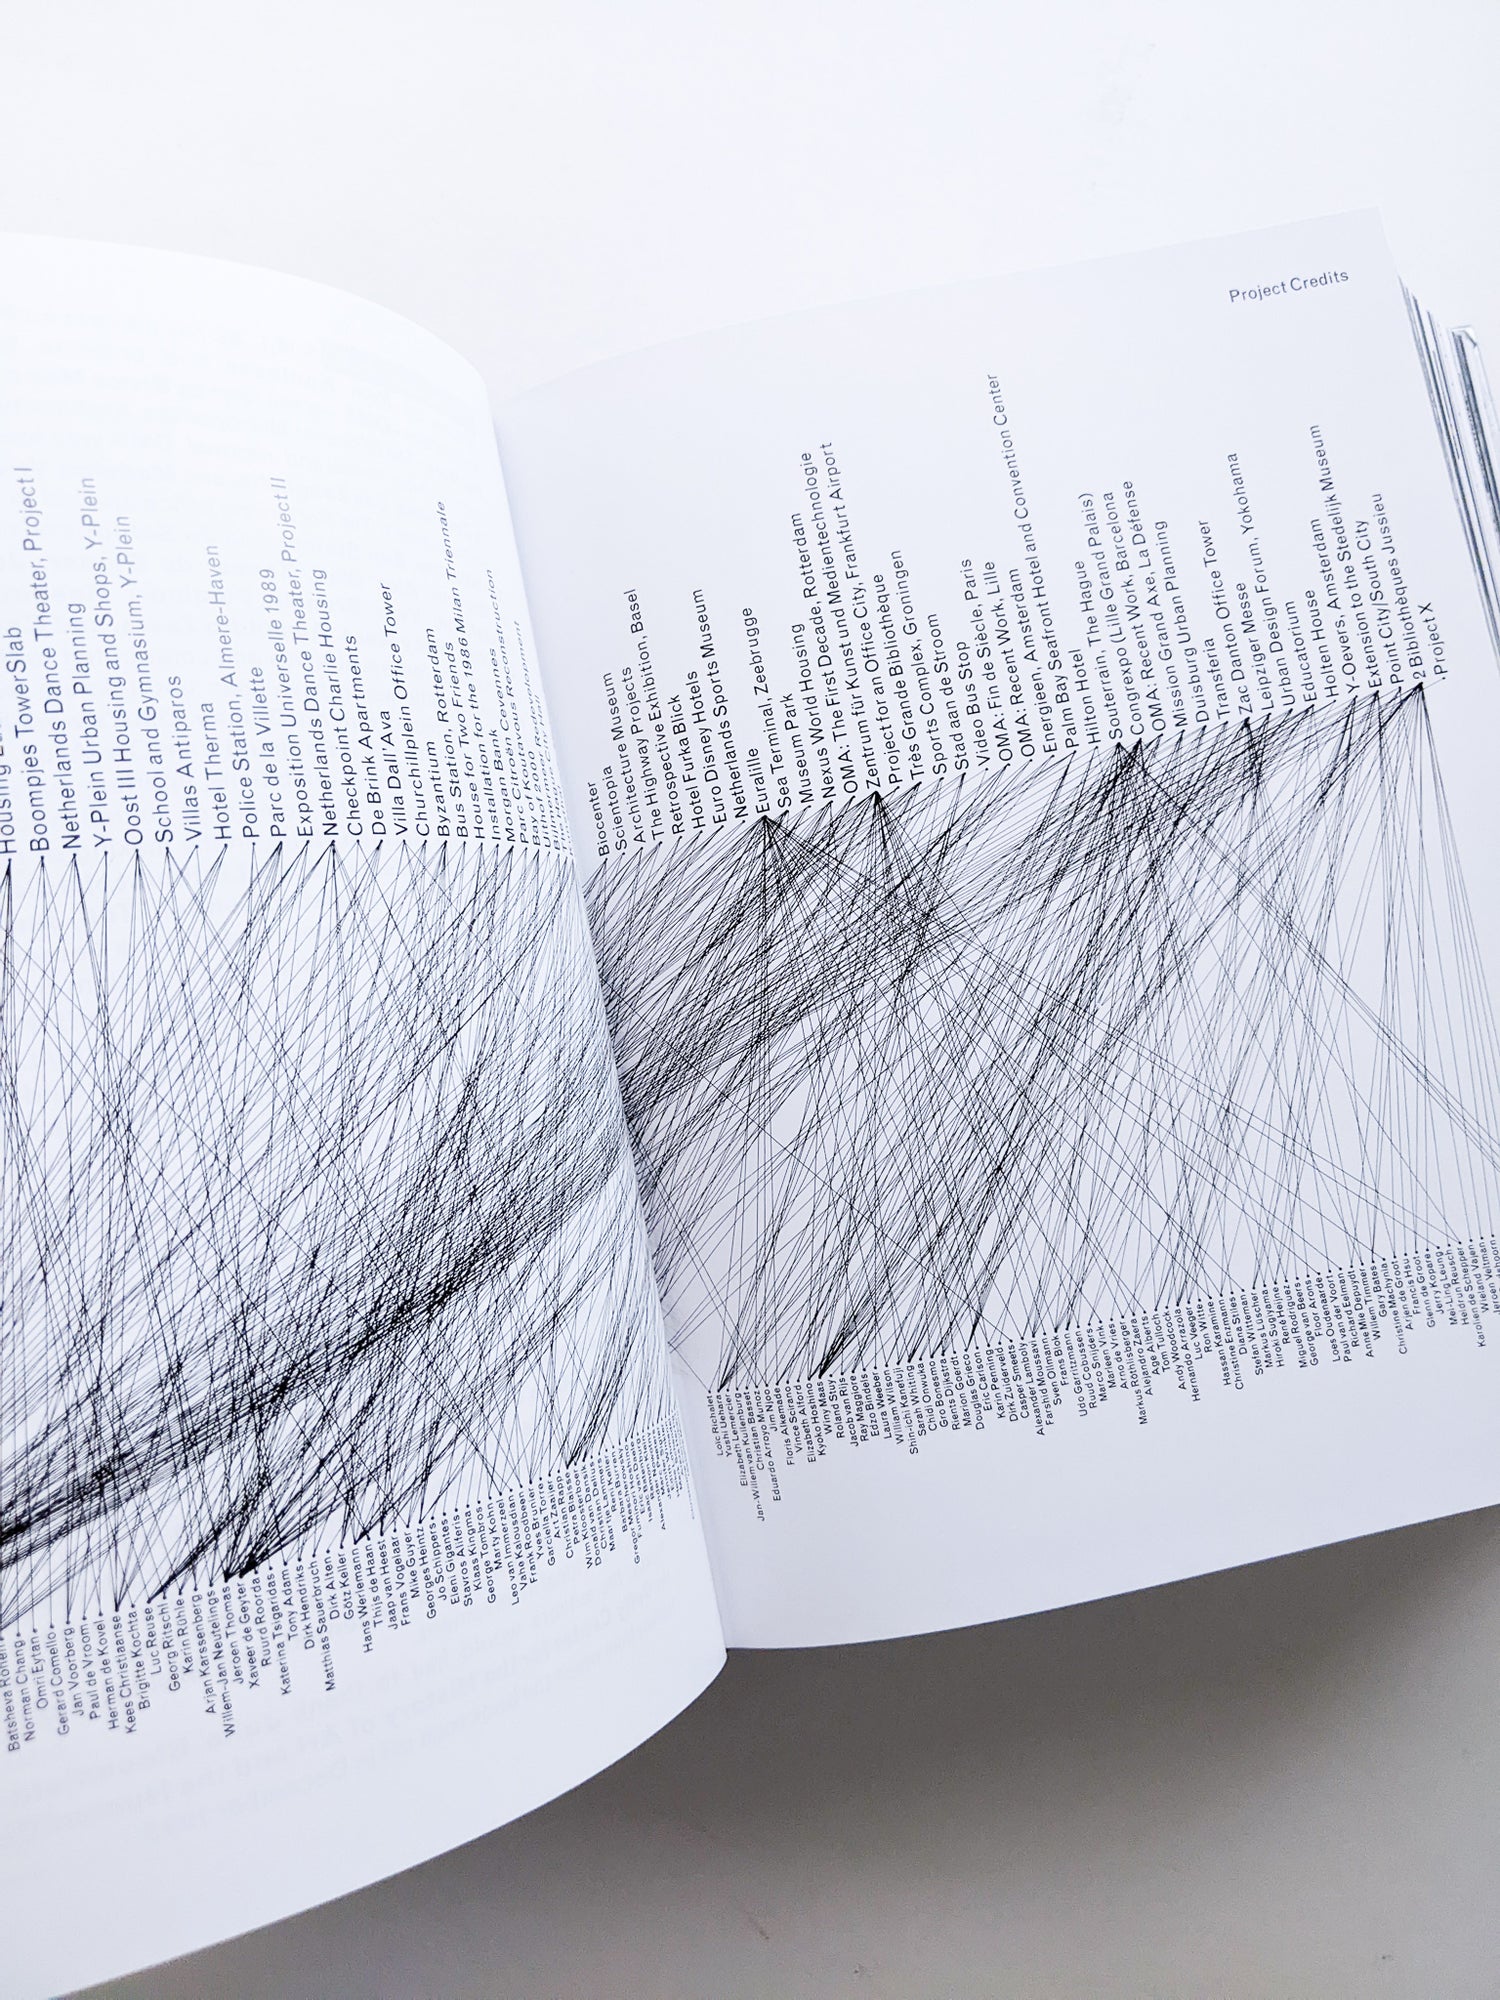 Housing
Boompjes TowerSlab
Netherlands Dance Theater, Project I
Netherlands Urban Planning
Y-Plein Urban Planning
Y-Plein Housing and Shops, Y-Plein
Oost III Housing and Shops, Y-Plein
School and Gymnasium, Y-Plein
Villas Antiparos
Hotel Therma
Police Station, Almere-Haven
Parc de la Villette
Exposition Universelle 1989
Netherlands Dance Theater, Project II
Checkpoint Charlie Housing
De Brink Apartments
Villa Dall'Ava
Churchillplein Office Tower
Byzantium
Bus Station, Rotterdam
House for Two Friends
Installation for the 1986 Milan Triennale
Morgan Bank
Parc Citroën Cevennes
Bay of Koutavous Reconstruction
Project Credits
Biocenter
Scientopia
Architecture Museum
The Highway Projects
Retrospective Exhibition, Basel
Hotel Furka Blick
Euro Disney Hotels
Netherlands Sports Museum
Euralille
Sea Terminal, Zeebrugge
Museum Park
Nexus World Housing
OMA: The First Decade, Rotterdam
Zentrum für Kunst und Medientechnologie
Project for an Office City, Frankfurt Airport
Très Grande Bibliothèque
Sports Complex, Groningen
Stad aan de Stroom
Video Bus Stop
OMA: Fin de Siècle, Paris
OMA: Recent Work, Lille
Energieen, Amsterdam
Palm Bay Seafront Hotel and Convention Center
Hilton Hotel
Souterrain, The Hague
Congrexpo (Lille Grand Palais)
OMA: Recent Work, Barcelona
Mission Grand Axe, La Défense
Duisburg Urban Planning
Transferia
Zac Danton Office Tower
Leipziger Messe
Urban Design Forum, Yokohama
Educatorium
Holten House
Y-Oevers, Amsterdam
Extension to the Stedelijk Museum
Point City/South City
2 Bibliothèques Jussieu
Project X
Batsheva Ronen
Norman Chang
Omri Eytan
Gerard Comello
Jan Voorberg
Paul de Vroom
Herman de Kovel
Kees Christiaanse
Brigitte Kochta
Luc Reuse
Georg Ritschl
Karin Rühle
Arjan Karssenberg
Willem-Jan Neutelings
Jeroen Thomas
Xaveer de Geyter
Ruurd Roorda
Katerina Tsigaridas
Tony Adam
Dirk Hendriks
Matthias Sauerbruch
Dirk Alten
Götz Keller
Hans Werlemann
Thijs de Haan
Jaap van Heest
Frans Vogelaar
Mike Guyer
Georges Heintz
Jo Schippers
Eleni Gigantes
Stavros Aliferis
Klaas Kingma
George Tombros
Marty Kohn
Leo van Immerzeel
Vahe Kalousdian
Frank Roodbeen
Yves Brunier
Garciella Torre
Art Zaaijer
Christian Rapp
Petra Blaisse
Wim Kloosterboer
Donald van Dansik
Loïc Richalet
Yushi Uehara
Elizabeth Lemercier
Jan-Willem van Kuilenburg
Christian Basset
Eduardo Arroyo Muñoz
Jim Njoo
Floris Alkemade
Vince Scirano
Elizabeth Alford
Kyoko Hoshino
Winy Maas
Roland Stuy
Jacob van Rijs
Ray Maggiore
Edzo Bindels
Laura Weeber
William Wilson
Shin-ichi Kanefuji
Sarah Whiting
Chidi Onwuka
Gro Bonesmo
Rients Dijkstra
Marion Goerdt
Douglas Grieco
Eric Carlson
Karin Penning
Dirk Zuiderveld
Casper Smeets
Alexander Lamboly
Farshid Moussavi
Sven Ollmann
Frans Blok
Udo Garritzmann
Ruud Cobussen
Marco Snijders
Marleen Vink
Arno de Vries
Markus Röthlisberger
Alejandro Zaera
Age Alberts
Tom Tulloch
Andy Woodcock
Hernando Arrazola
Luc Veeger
Ron Witte
Hassan Karamine
Christine Enzmann
Diana Stiles
Stefan Witteman
Markus Lüscher
Hiroki Sugiyama
René Heijne
Miguel Rodriguez
George van Beers
Floor Arons
Loes Oudenaarde
Paul van der Voort
Richard Eelman
Anne Mie Depuydt
Willem Timmer
Gary Bates
Christine Machynia
Arjen de Groot
Francis Hsu
Glenn de Groot
Jerry Kopare
Mei-Ling Leung
Heidrun Reusch
Karolien de Schepper
Wieland Vajen
Jeroen Veltman